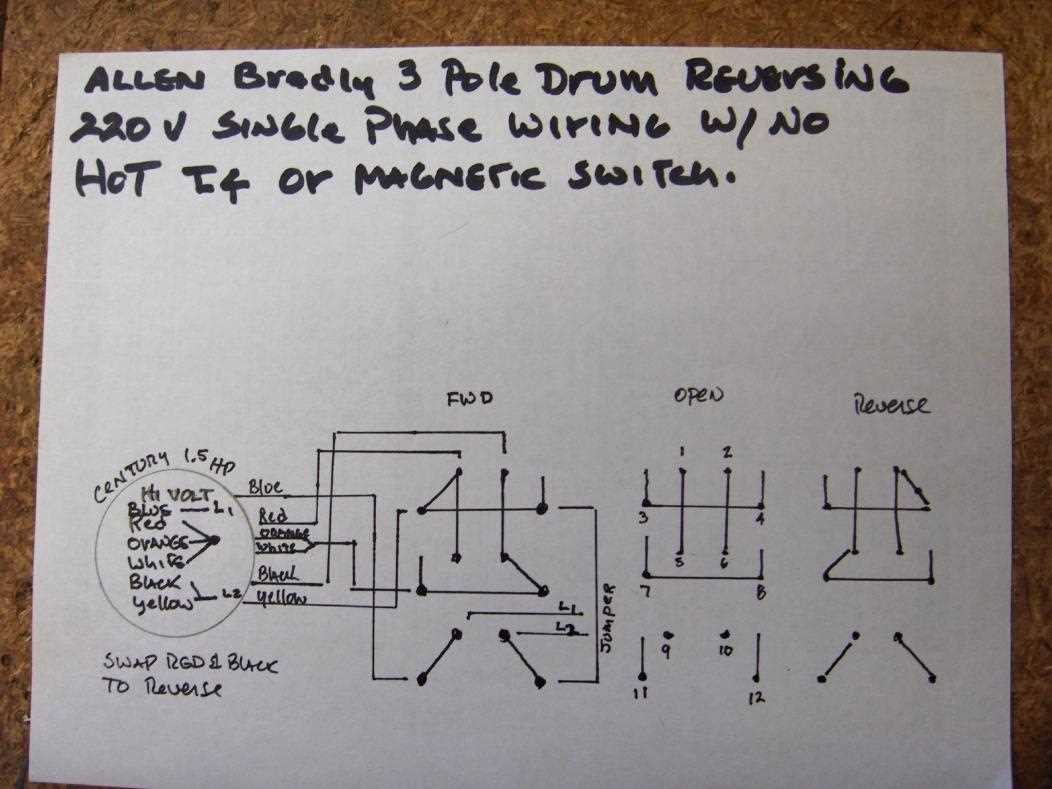 ALLEN Bradly 3 Pole Drum Reversing
220 V Single Phase Wiring W/ No
Hot I4 or Magnetic Switch.
FWD
OPEN
Reverse
CENTURY 1.5 HP
Hi VOLT
Blue L1
Red
ORANGE
White
Black
Yellow L2
Blue
Red
ORANGE
White
Black
Yellow
L1
L2
JUMPER
1 2
3 4
5 6
7 8
9 10
11 12
SWAP RED & BLACK
TO Reverse